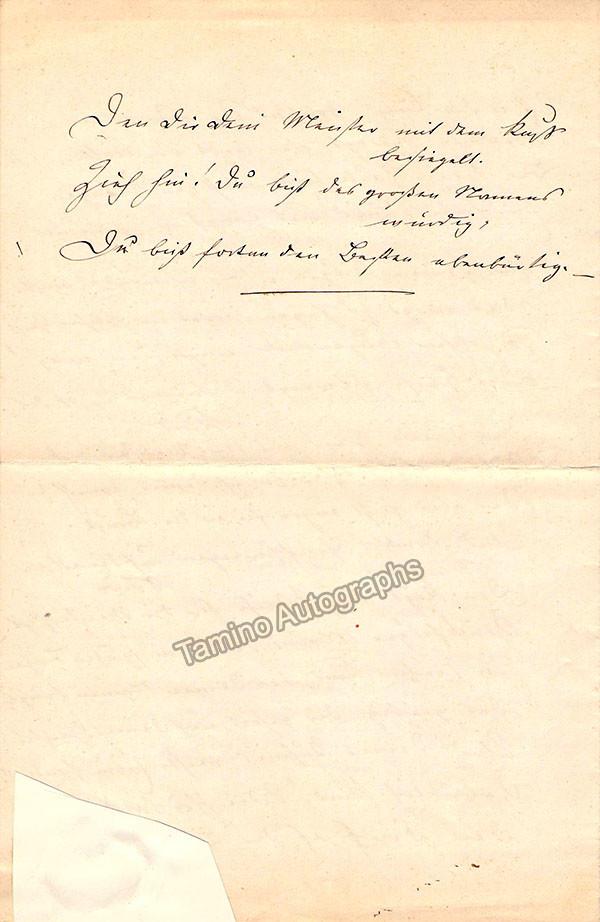 Den Dir Dein Meister mit dem Kuß
besiegelt.
Zieh hin! Du bist des großen Namens
würdig,
Du bist fortan den Besten ebenbürtig. —
Tamino Autographs